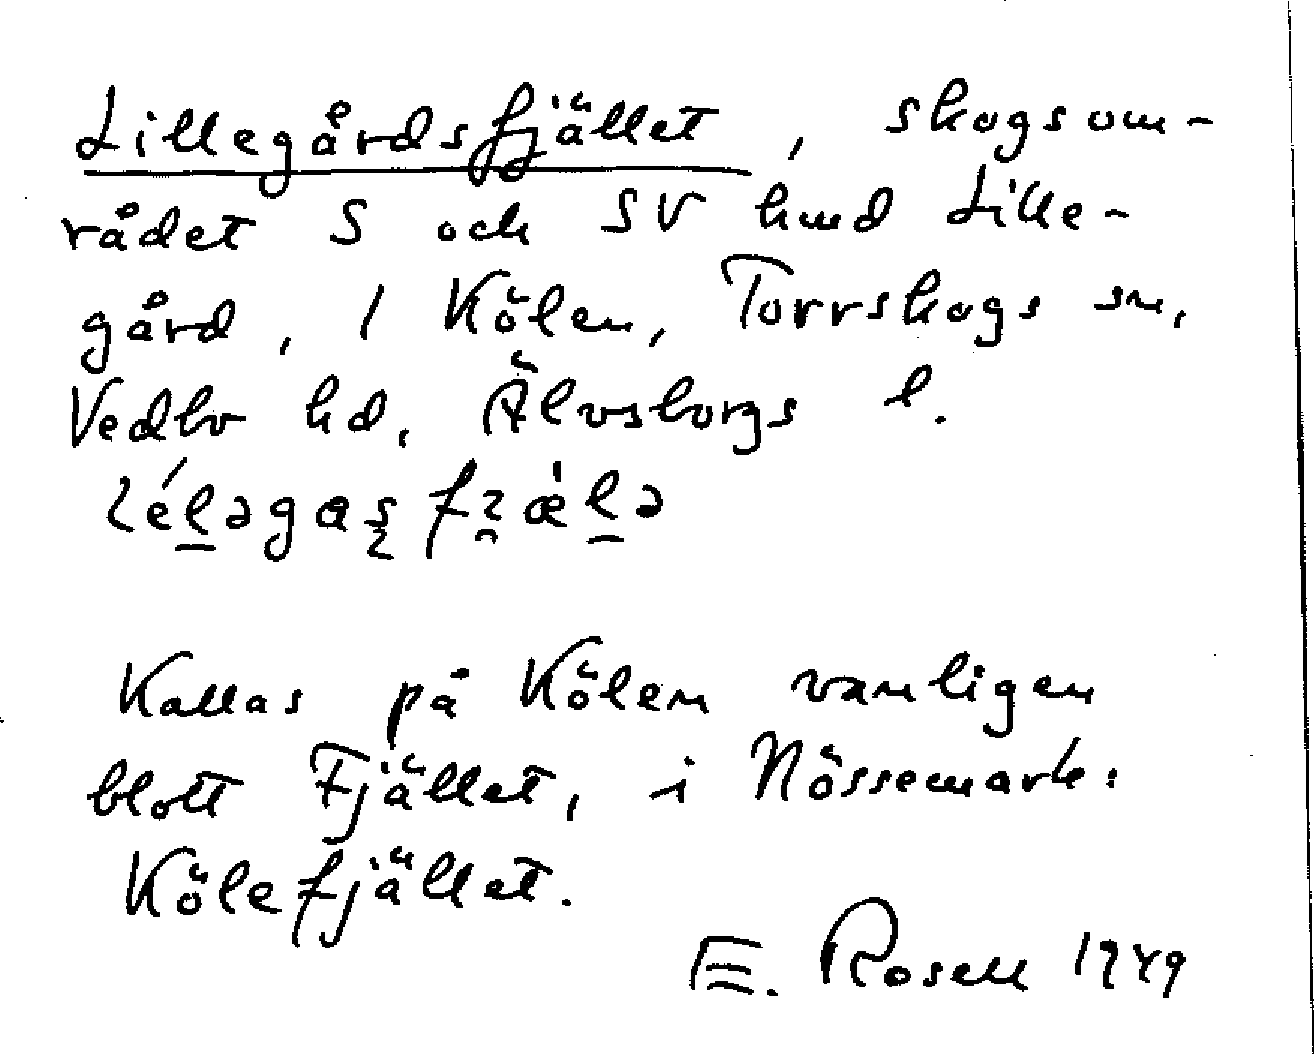 Lillegårdsfjället, skogsom-
rådet S och SV hmd Lille-
gård, 1 Kölen, Torrskogs sn,
Vedbo hd, Älvsborgs l.
Kallas på Kölen vanligen
blott Fjället, i Nössemark:
Kölefjället.
E. Rosell 1949